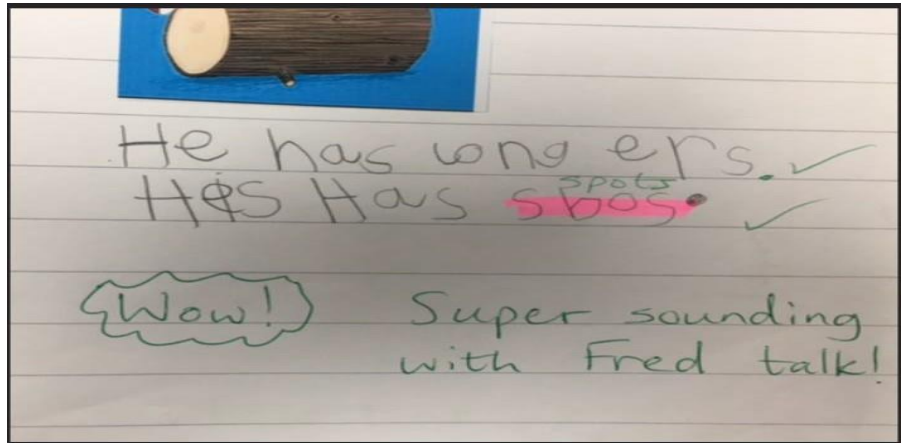 He has long ers. ✓
spots
His Has sbos. ✓
Wow! Super sounding
with Fred talk!